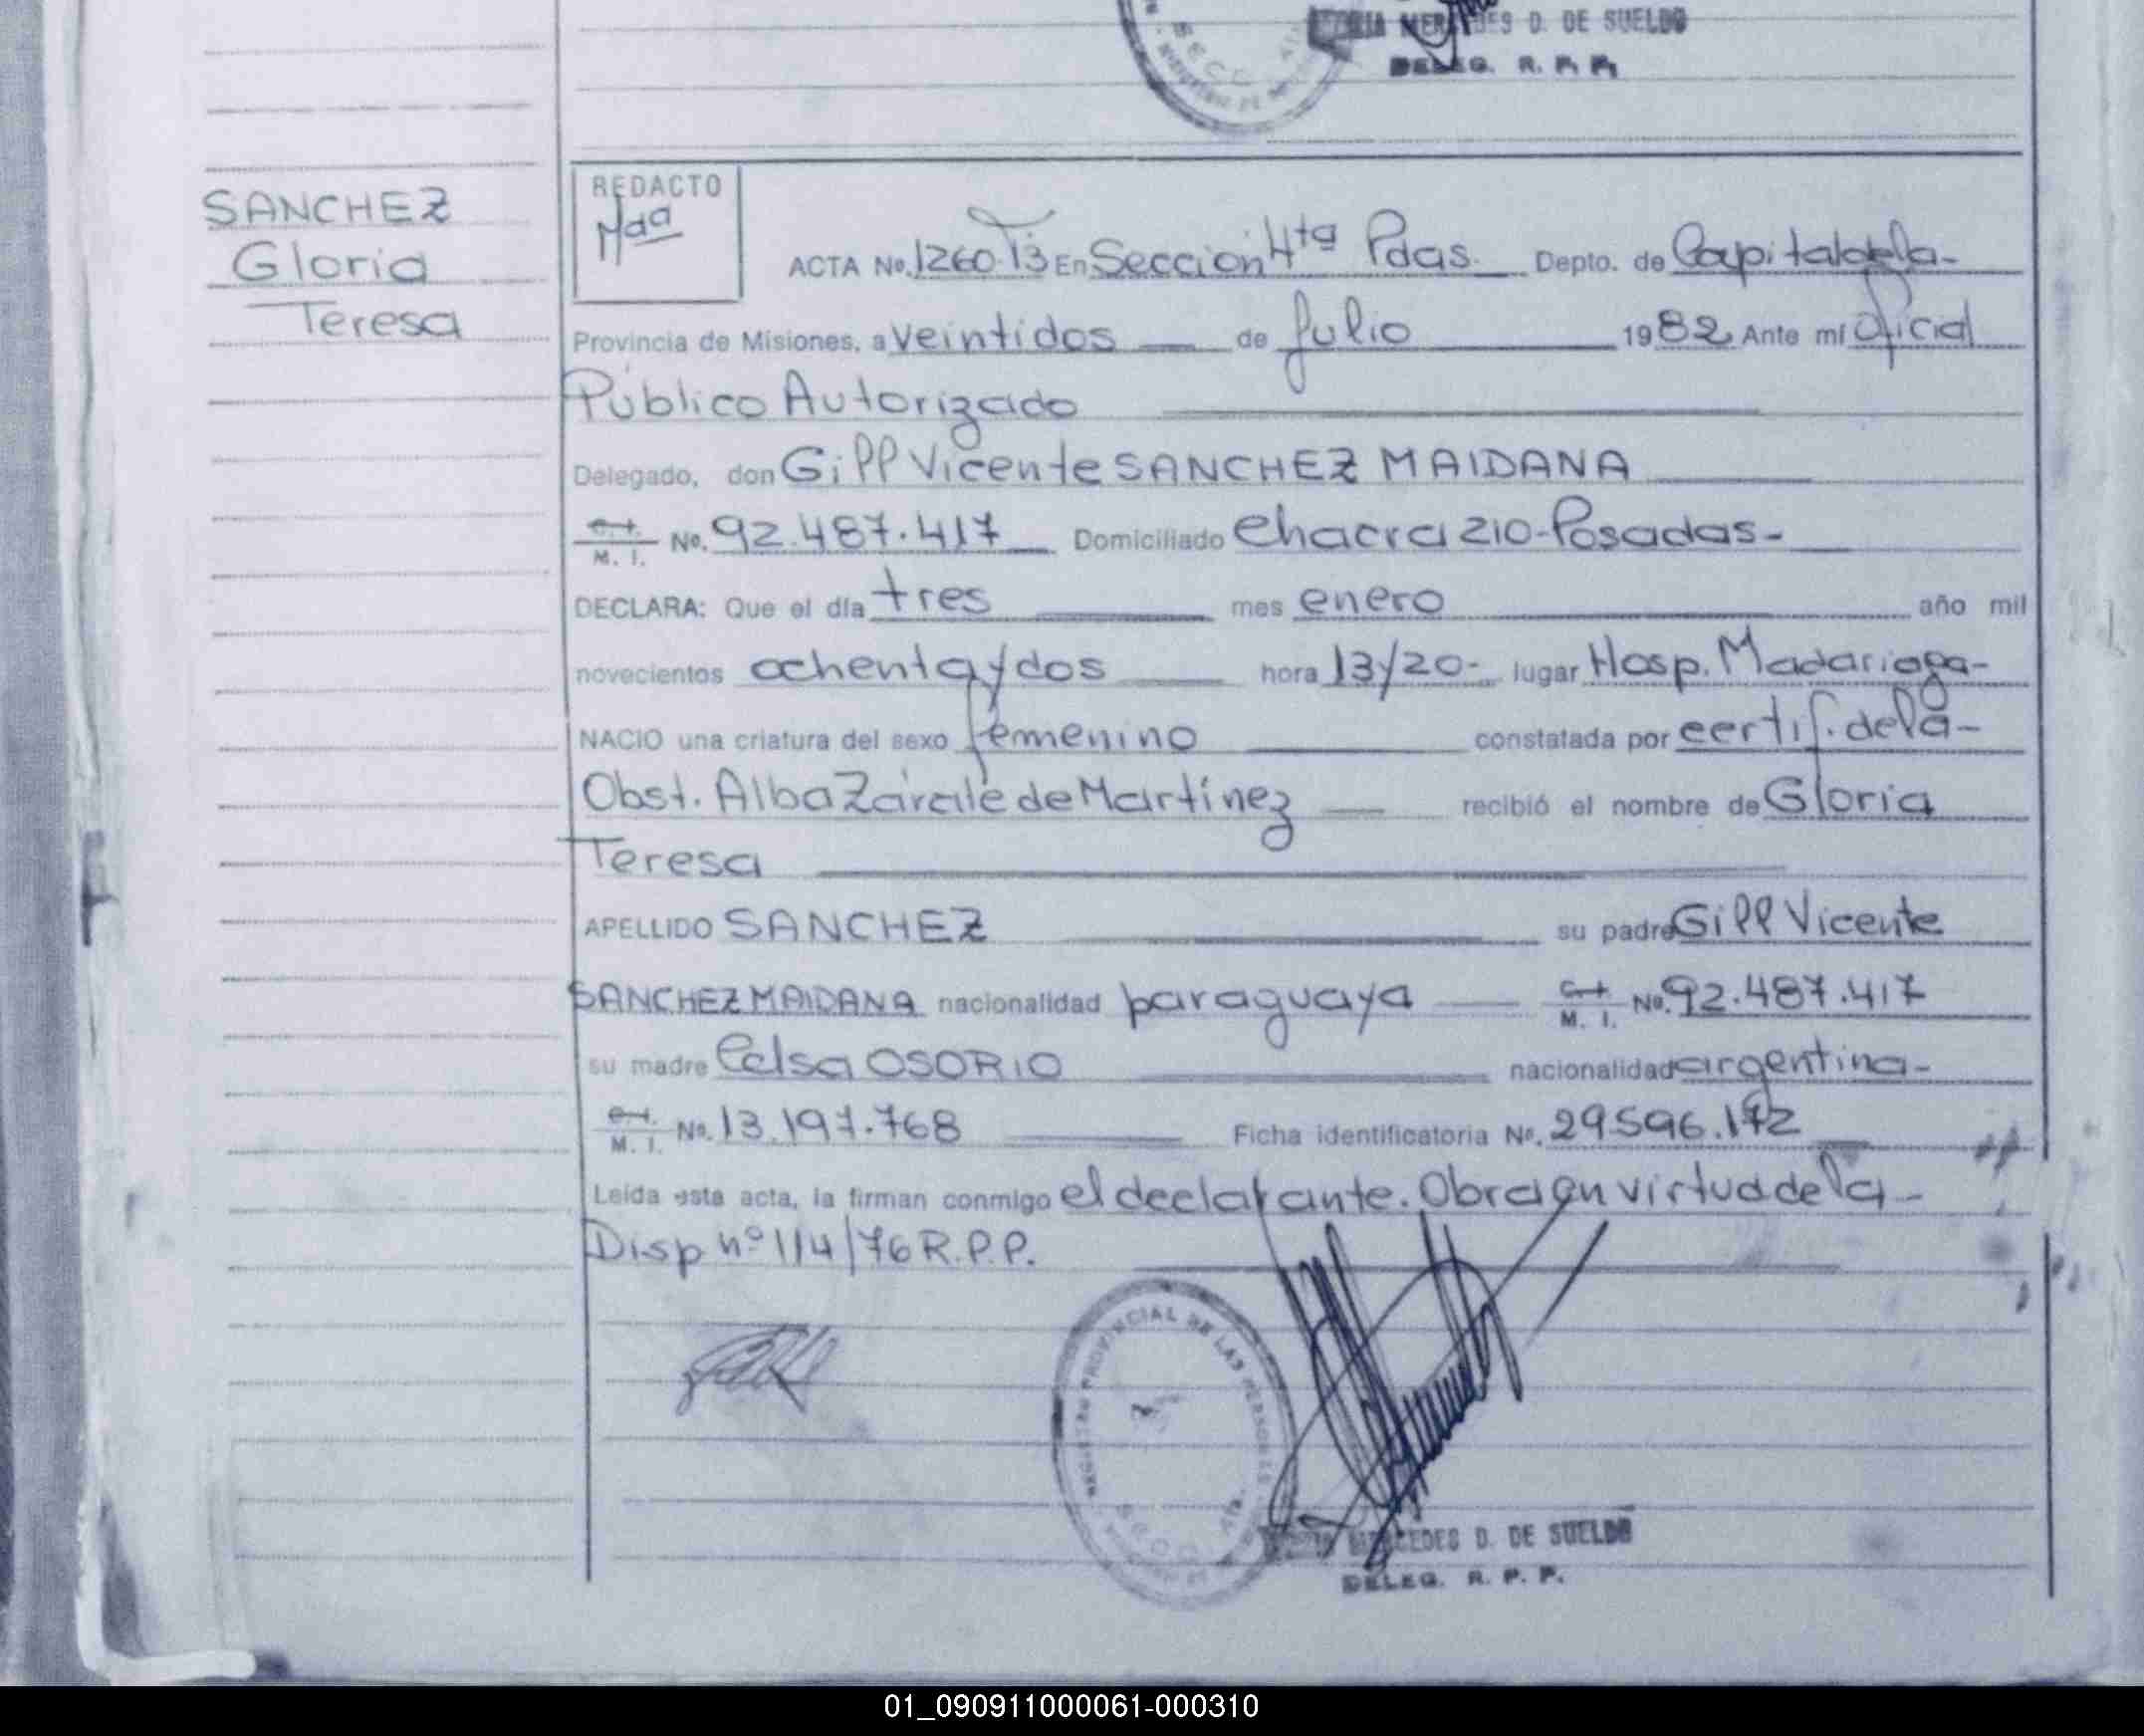 MERCEDES D. DE SUELDO
DELEG. R. P. P.
SANCHEZ
Gloria
Teresa
REDACTO
Mda
ACTA No. 1260 T3 En Sección 4ta Pdas. Depto. de Capital de la-
Provincia de Misiones, a veintidos de Julio 1982 Ante mí Oficial
Público Autorizado
Delegado, don Gill Vicente SANCHEZ MAIDANA
C.I.
M. I. No. 92.487.417 Domiciliado Chacra 210-Posadas-
DECLARA: Que el día tres mes enero año mil
novecientos ochenta y dos hora 13/20- lugar Hosp. Madariaga-
NACIO una criatura del sexo femenino constatada por certif. de la-
Obst. Alba Zárate de Martínez recibió el nombre de Gloria
Teresa
APELLIDO SANCHEZ su padre Gill Vicente
SANCHEZ MAIDANA nacionalidad paraguaya C.I. M. I. No. 92.487.417
su madre Celsa OSORIO nacionalidad argentina-
C.I.
M. I. No. 13.197.768 Ficha identificatoria No. 29596.172
Leída esta acta, la firman conmigo el declarante. Obra en virtud de la-
Disp nº 114/76 R.P.P.
REGISTRO PROVINCIAL DE LAS PERSONAS
SECC 4ta.
MERCEDES D. DE SUELDO
DELEG. R. P. P.
01_090911000061-000310